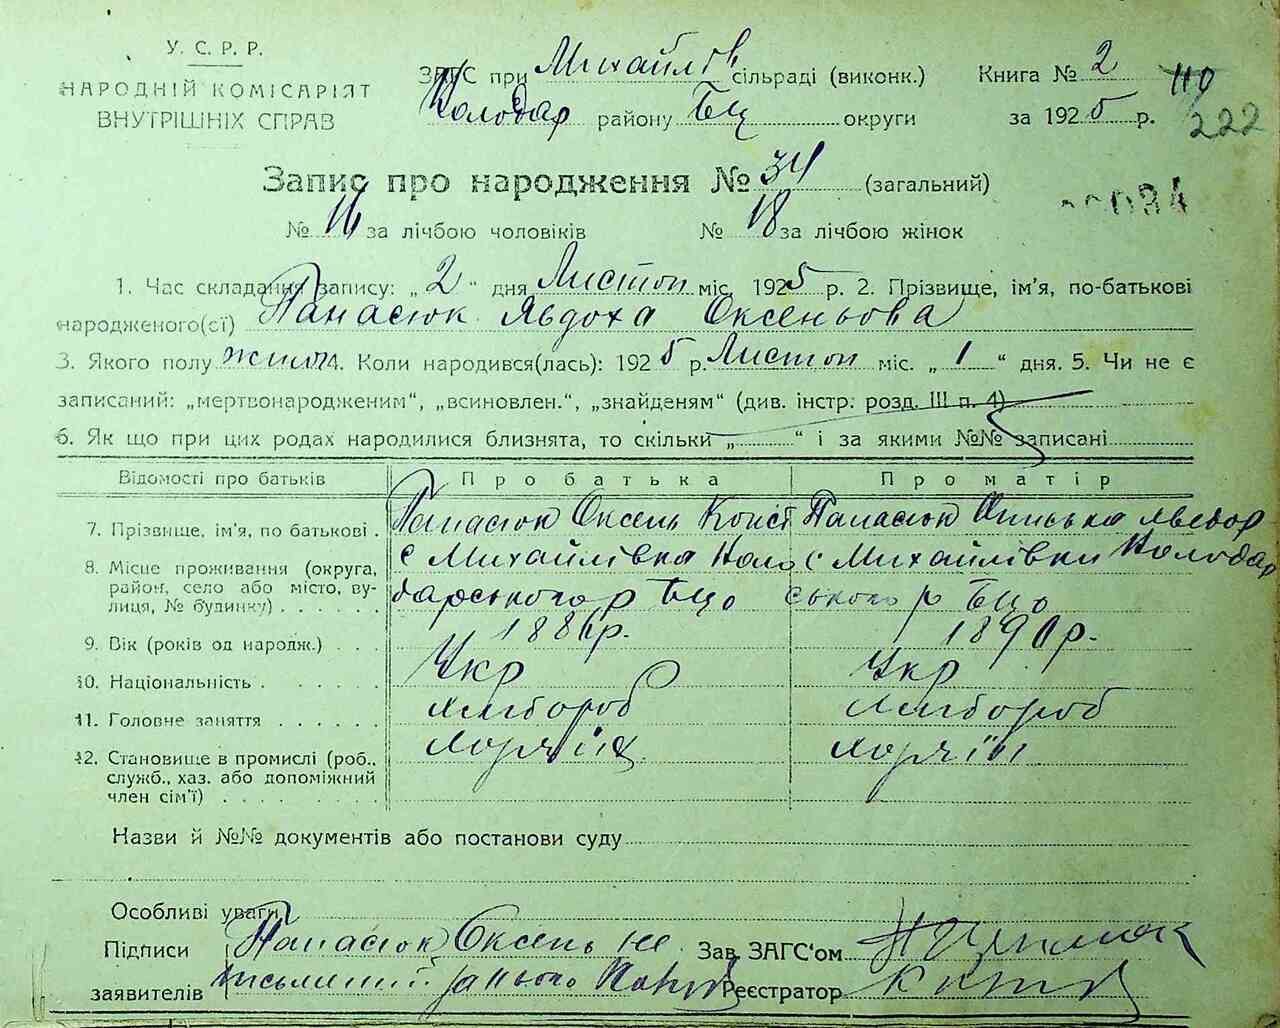 У. С. Р. Р.
НАРОДНІЙ КОМІСАРІЯТ
ВНУТРІШНІХ СПРАВ
ЗАГС при Михайлів сільраді (виконк.) Книга № 2 110
Колодар району Бц округи за 1925 р. 222
Запис про народження № 34 (загальний)
034
№ 16 за лічбою чоловіків № 18 за лічбою жінок
1. Час складання запису: „2“ дня Листоп міс. 1925 р. 2. Прізвище, ім'я, по-батькові
народженого(сї) Панасюк Явдоха Оксеньова
3. Якого полу жіноч 4. Коли народився(лась): 1925 р. Листоп міс. „1“ дня. 5. Чи не є
записаний: „мертвонародженим“, „всиновлен.“, „знайденям“ (див. інстр. розд. III п. 4)
6. Як що при цих родах народилися близнята, то скільки „ “ і за якими №№ записані
Відомості про батьків Про батька Про матір
7. Прізвище, ім'я, по батькові . Панасюк Оксень Конст Панасюк
8. Місце проживання (округа, с Михайлівка Коло с Михайлівки Колодар
район, село або місто, ву-
лиця, № будинку) . . . . дарського р Бцо ського р Бцо
9. Вік (років од народж.) . . .
10. Національність . . . . . . Укр Укр
11. Головне заняття . . . . . . хлібороб хлібороб
12. Становище в промислі (роб.,
служб., хаз. або допоміжний
член сім'ї) . . . . . . . .
Назви й №№ документів або постанови суду
Особливі уваги
Підписи Панасюк Оксень не Зав. ЗАГС'ом
заявителів письменний за нього Реєстратор